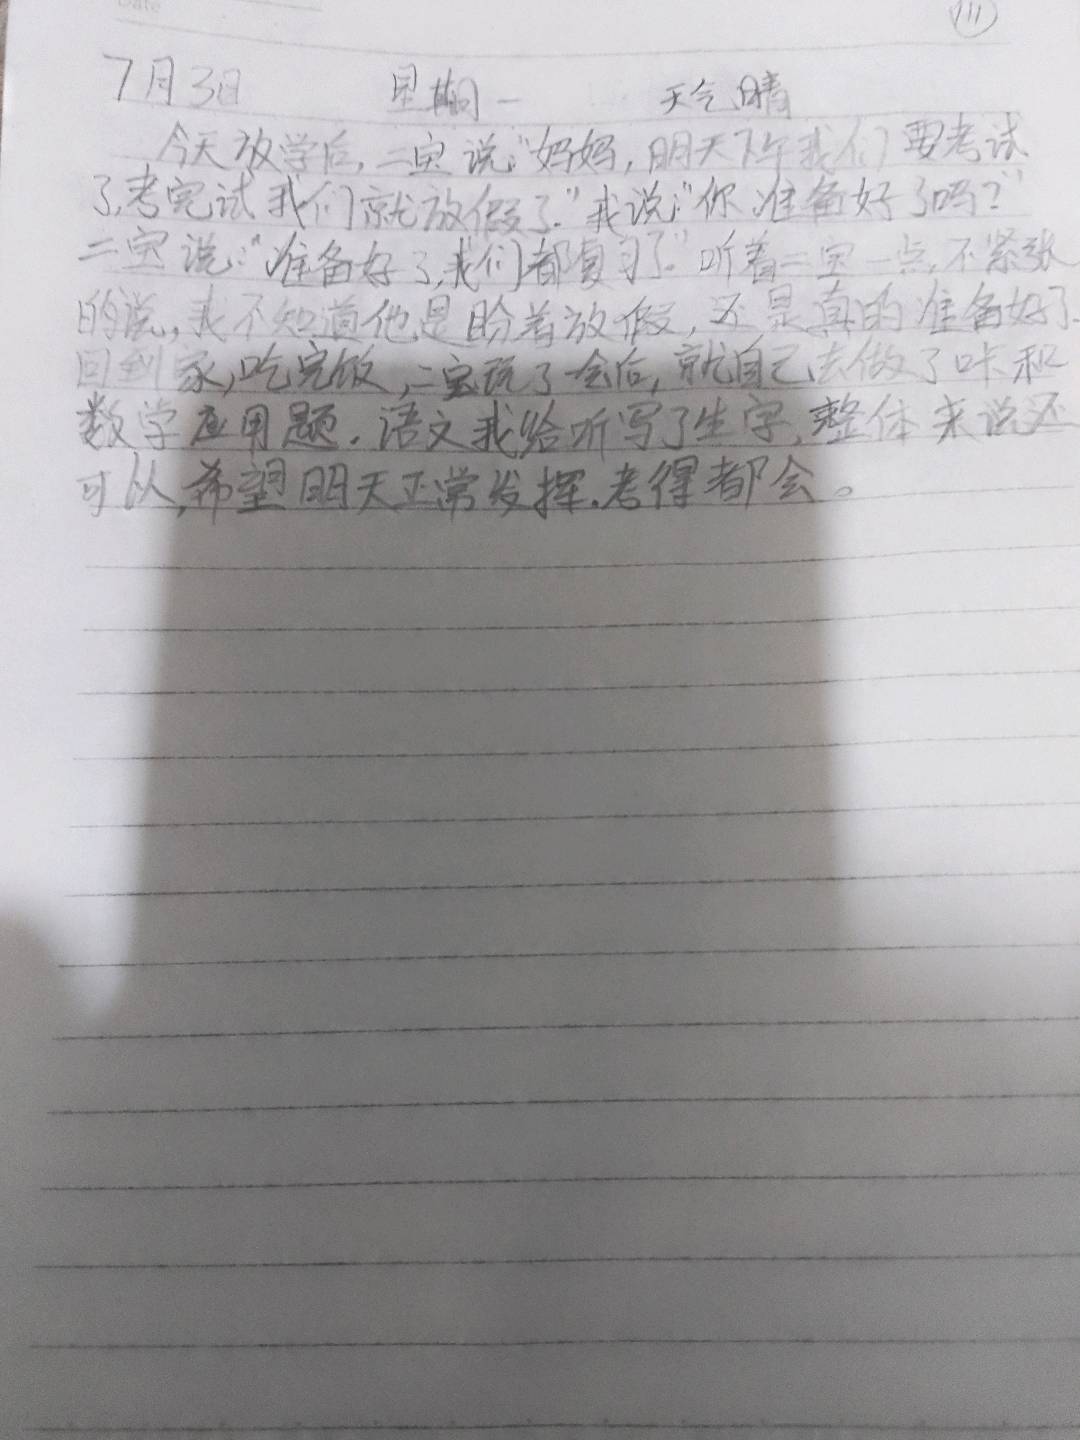 Date
111
7月3日 星期一 天气晴
今天放学后,二宝说:"妈妈,明天下午我们要考试
了,考完试我们就放假了."我说:"你准备好了吗?"
二宝说:"准备好了,我们都复习了."听着二宝一点,不紧张
的说,我不知道他是盼着放假,还是真的准备好了.
回到家,吃完饭,二宝玩了一会后,就自己去做了口耳和
数学应用题.语文我给听写了生字,整体来说还
可以,希望明天正常发挥.考得都会。